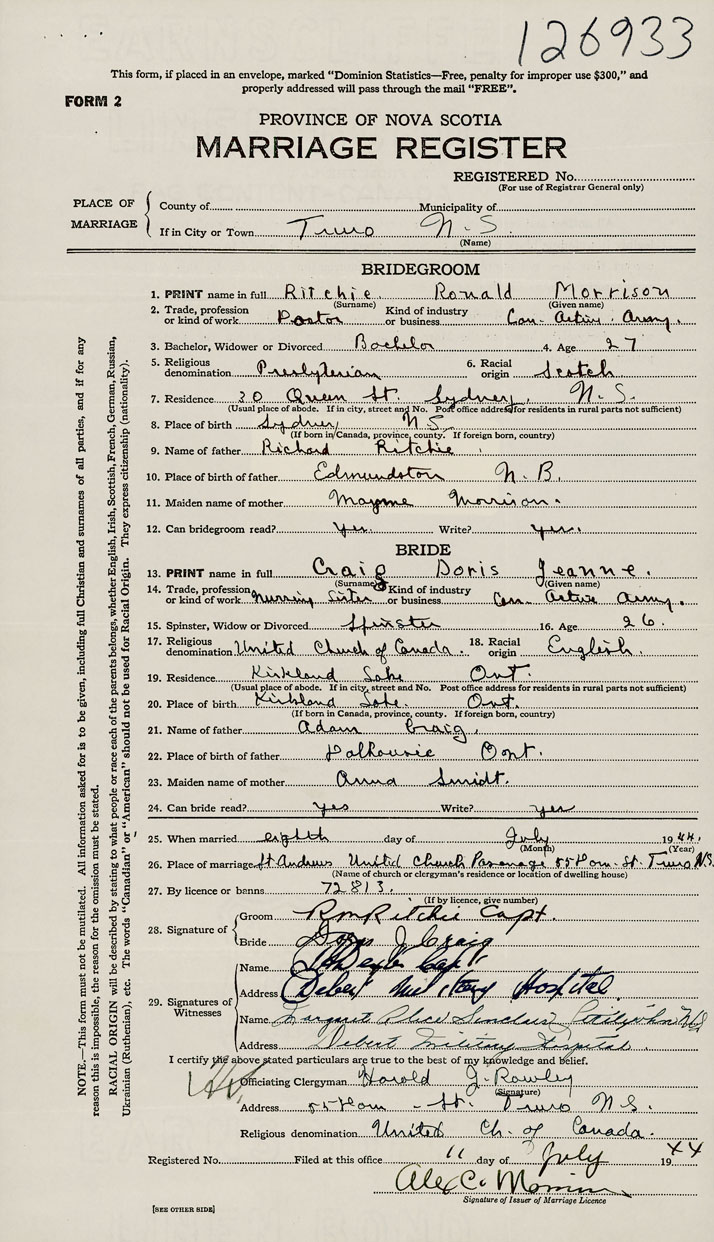 126933
This form, if placed in an envelope, marked "Dominion Statistics—Free, penalty for improper use $300," and
properly addressed will pass through the mail "FREE".
FORM 2
PROVINCE OF NOVA SCOTIA
MARRIAGE REGISTER
REGISTERED No.
(For use of Registrar General only)
PLACE OF MARRIAGE
County of Municipality of
If in City or Town Truro N.S.
(Name)
BRIDEGROOM
1. PRINT name in full Ritchie Ronald Morrison
(Surname) (Given name)
2. Trade, profession or kind of work Kind of industry or business Can. Active Army.
3. Bachelor, Widower or Divorced Bachelor 4. Age 27
5. Religious denomination Presbyterian 6. Racial origin Scotch
7. Residence 30 Queen St. Sydney, N.S.
(Usual place of abode. If in city, street and No. Post office address for residents in rural parts not sufficient)
8. Place of birth Sydney N.S.
(If born in Canada, province, county. If foreign born, country)
9. Name of father Richard Ritchie
10. Place of birth of father Edmundston N.B.
11. Maiden name of mother Mayme Morrison.
12. Can bridegroom read? Yes. Write? yes.
BRIDE
13. PRINT name in full Craig Doris Jeanne.
(Surname) (Given name)
14. Trade, profession or kind of work Nursing Sister Kind of industry or business Can. Active Army.
15. Spinster, Widow or Divorced Spinster 16. Age 26.
17. Religious denomination United Church of Canada. 18. Racial origin English.
19. Residence Kirkland Lake Ont.
(Usual place of abode. If in city, street and No. Post office address for residents in rural parts not sufficient)
20. Place of birth Kirkland Lake. Ont.
(If born in Canada, province, county. If foreign born, country)
21. Name of father Adam Craig.
22. Place of birth of father Dalhousie Ont.
23. Maiden name of mother Anna Smidt.
24. Can bride read? yes Write? yes
25. When married eighth day of July 1944.
(Month) (Year)
26. Place of marriage St Andrews United Church Parsonage 55 Hom. St. Truro N.S.
(Name of church or clergyman's residence or location of dwelling house)
27. By licence or banns 72813.
(If by licence, give number)
28. Signature of
Groom RM Ritchie Capt.
Bride Doris J Craig
29. Signatures of Witnesses
Name Capt.
Address Debert Military Hospital
Name Margaret Alice Sinclair
Address Debert Military Hospital.
I certify the above stated particulars are true to the best of my knowledge and belief.
Officiating Clergyman Harold J. Rowley
(Signature)
Address 55 Hom - St. Truro N.S.
Religious denomination United Ch. of Canada.
Registered No. Filed at this office 11 day of July 1944
Alex C.
Signature of Issuer of Marriage Licence
[SEE OTHER SIDE]
NOTE.—This form must not be mutilated. All information asked for is to be given, including full Christian and surnames of all parties, and if for any
reason this is impossible, the reason for the omission must be stated.
RACIAL ORIGIN will be described by stating to what people or race each of the parents belongs, whether English, Irish, Scottish, French, German, Russian,
Ukrainian (Ruthenian), etc. The words "Canadian" or "American" should not be used for Racial Origin. They express citizenship (nationality).